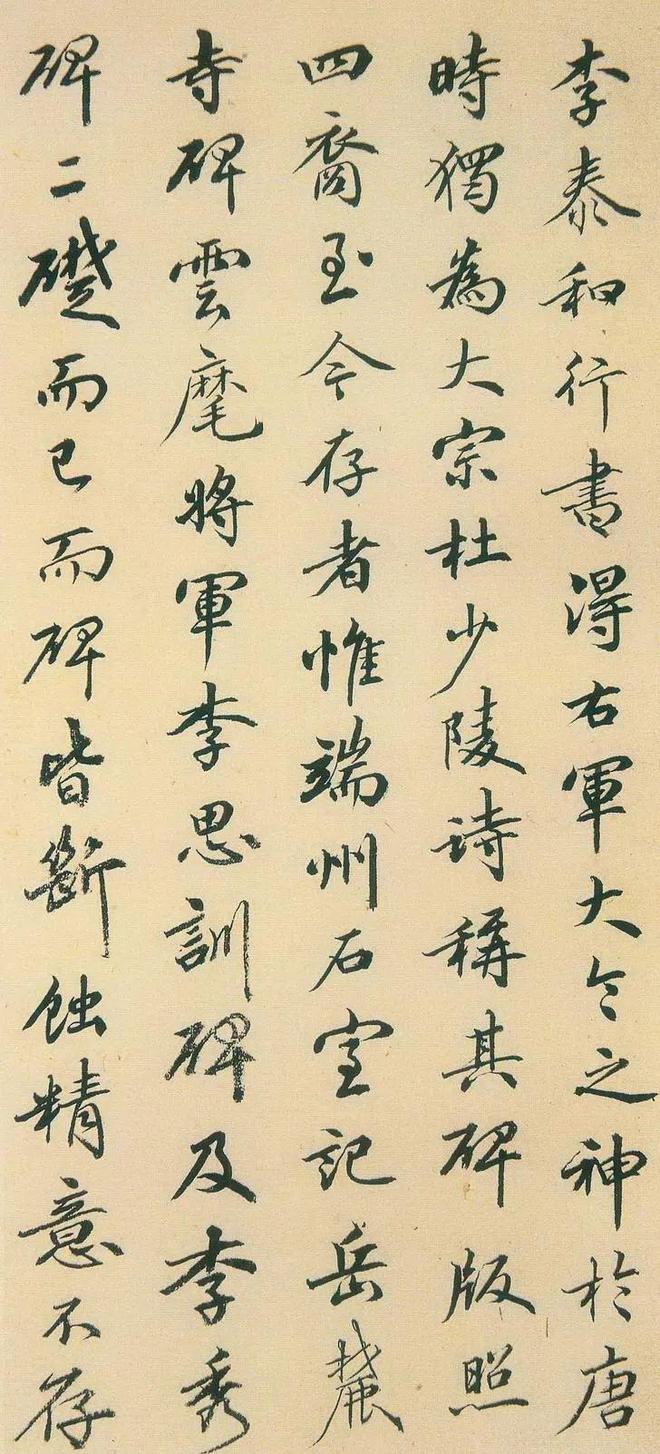 李泰和行書得右軍大令之神於唐
時獨為大宗杜少陵詩稱其碑版照
四裔至今存者惟端州石室記岳麓
寺碑雲麾將軍李思訓碑及李秀
碑二礎而已而碑皆斷蝕精意不存